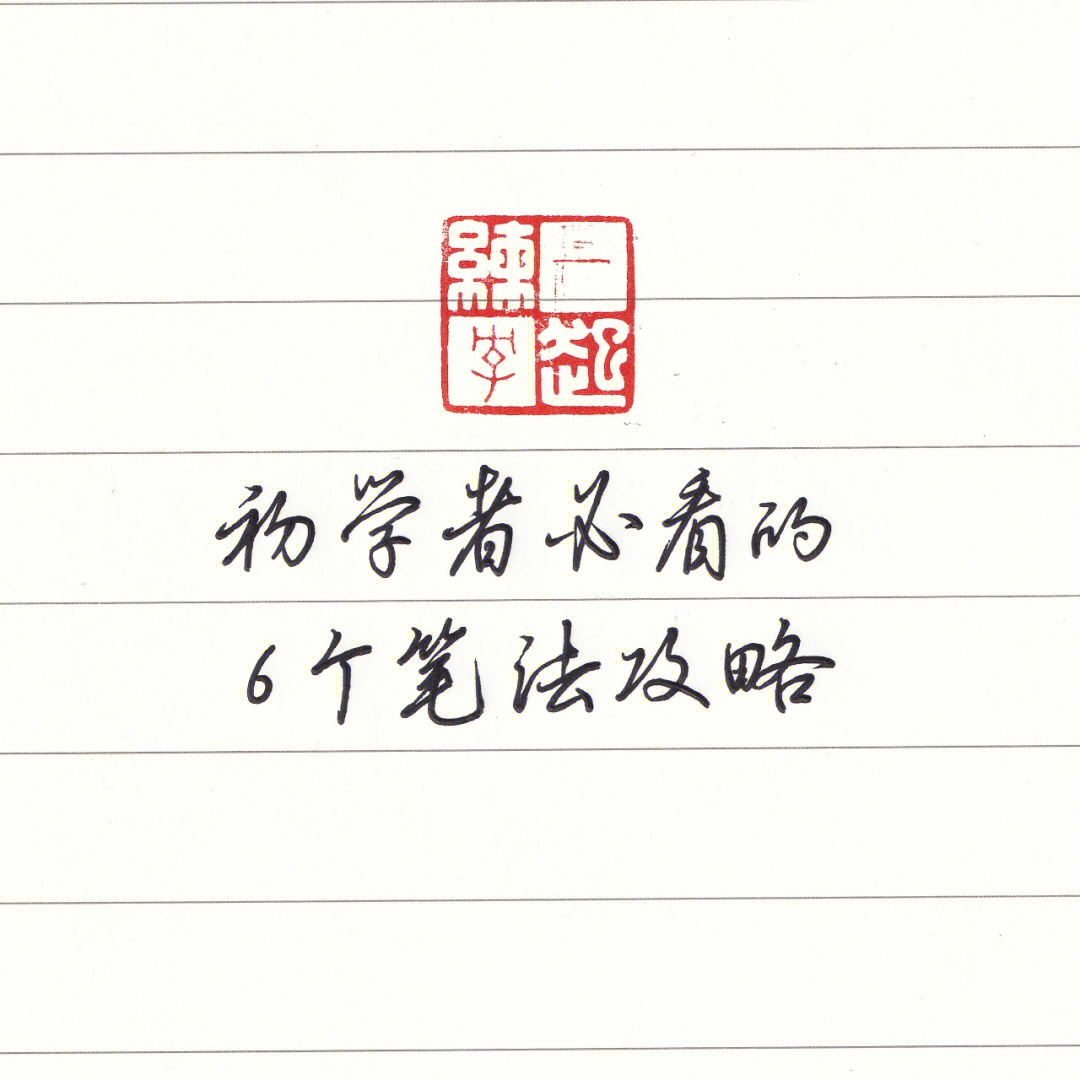 一起練字
初学者必看的
6个笔法攻略